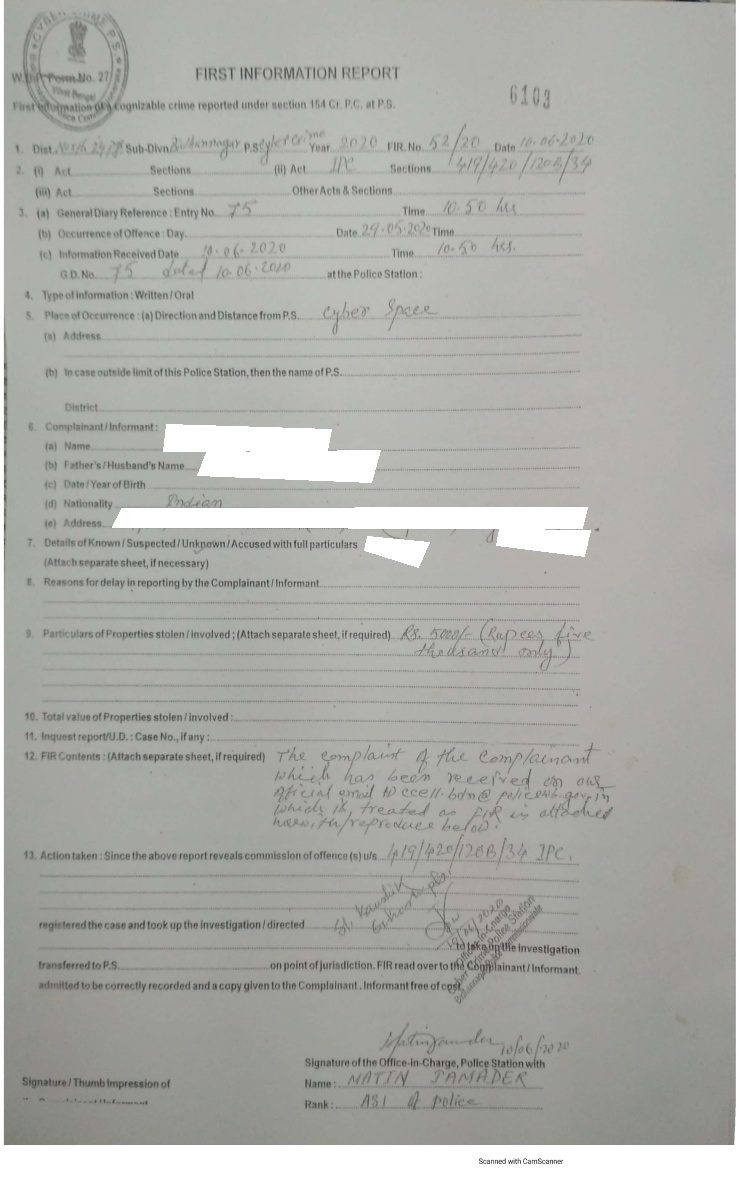 CYBER CRIME P.S.
W.B.P. Form No. 27
West Bengal
FIRST INFORMATION REPORT
6103
First Information of a cognizable crime reported under section 154 Cr. P.C. at P.S.
1. Dist. Sub-Divn. Bidhannagar P.S. Cyber Crime Year 2020 FIR. No. 52/20 Date 10.06.2020
2. (i) Act Sections (ii) Act IPC Sections 419/420/120B/34
(iii) Act Sections Other Acts & Sections
3. (a) General Diary Reference : Entry No. 75 Time 10.50 hrs
(b) Occurrence of Offence : Day Date 29.05.2020 Time
(c) Information Received Date 10.06.2020 Time 10.50 hrs.
G.D. No. 75 dated 10.06.2020 at the Police Station :
4. Type of Information : Written / Oral
5. Place of Occurrence : (a) Direction and Distance from P.S. Cyber Space
(a) Address
(b) In case outside limit of this Police Station, then the name of P.S.
District
6. Complainant / Informant :
(a) Name
(b) Father's / Husband's Name
(c) Date / Year of Birth
(d) Nationality Indian
(e) Address
7. Details of Known / Suspected / Unknown / Accused with full particulars
(Attach separate sheet, if necessary)
8. Reasons for delay in reporting by the Complainant / Informant
9. Particulars of Properties stolen / involved ; (Attach separate sheet, if required) Rs. 5000/- (Rupees five
thousand only)
10. Total value of Properties stolen / involved :
11. Inquest report/U.D. : Case No., if any :
12. FIR Contents : (Attach separate sheet, if required) The complaint of the complainant
which has been received on our
official email ID ccell-bdn@policewb.gov.in
which is treated as FIR is attached
herewith/reproduce below.
13. Action taken : Since the above report reveals commission of offence (s) u/s 419/420/120B/34 IPC.
SI. Kaushik
registered the case and took up the investigation / directed
10/06/2020
Officer-In-Charge
Cyber Crime Police Station
to take up the investigation
transferred to P.S. on point of jurisdiction. FIR read over to the Complainant / Informant.
admitted to be correctly recorded and a copy given to the Complainant. Informant free of cost.
10/06/2020
Signature of the Office-in-Charge, Police Station with
Signature / Thumb Impression of
Name : MATIN JAMADER
Rank : ASI of police
Scanned with CamScanner